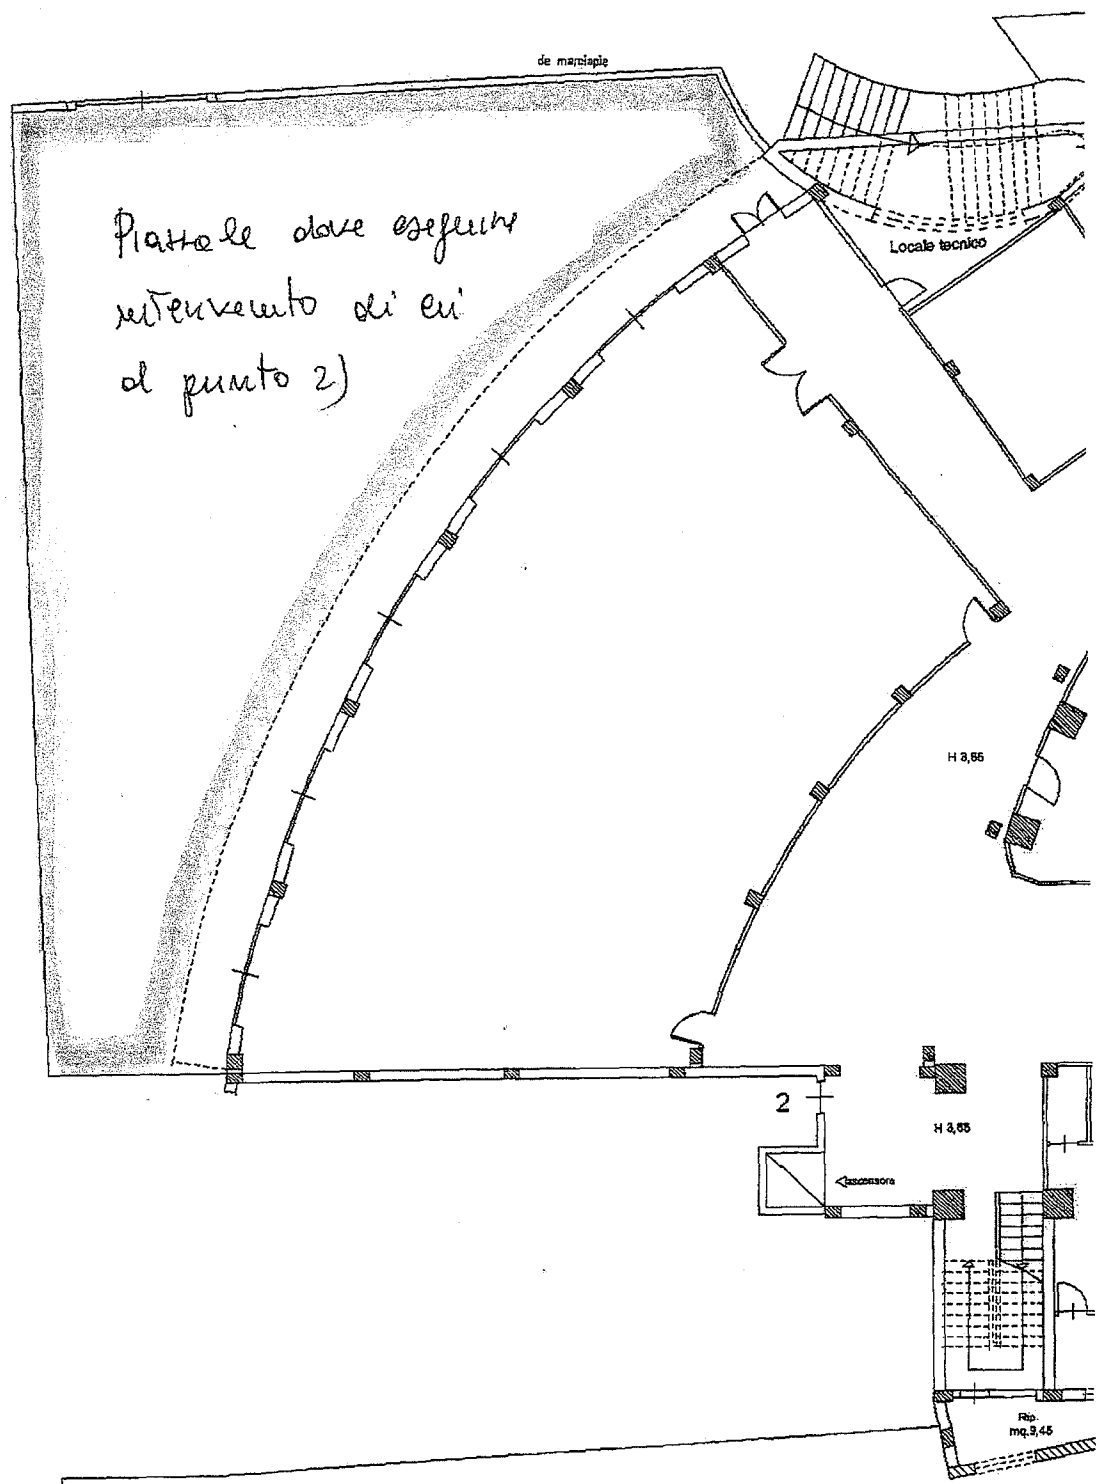 de marciapie
Piazzale dove eseguire
intervento di cui
al punto 2)
Locale tecnico
H 3,65
2
H 3,65
ascensore
Rip.
mq.9,45